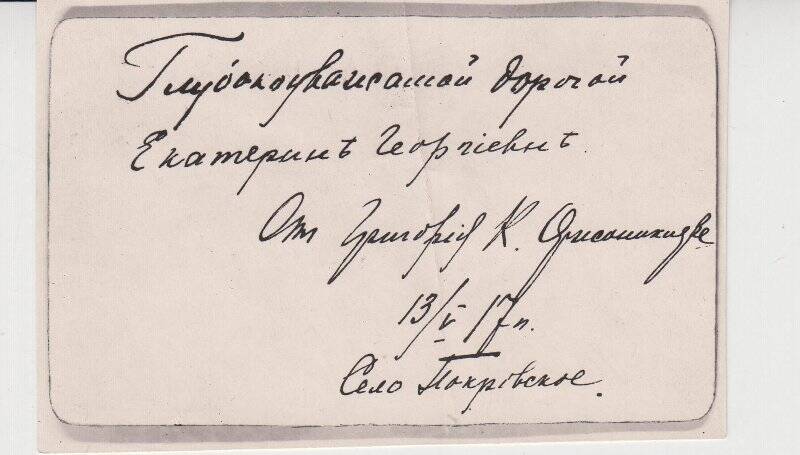 Глубокоуважаемой дорогой
Екатеринѣ Георгіевнѣ.
От Григорія К. Орисоникидзе
13/V 17 г.
Село Покрівское.